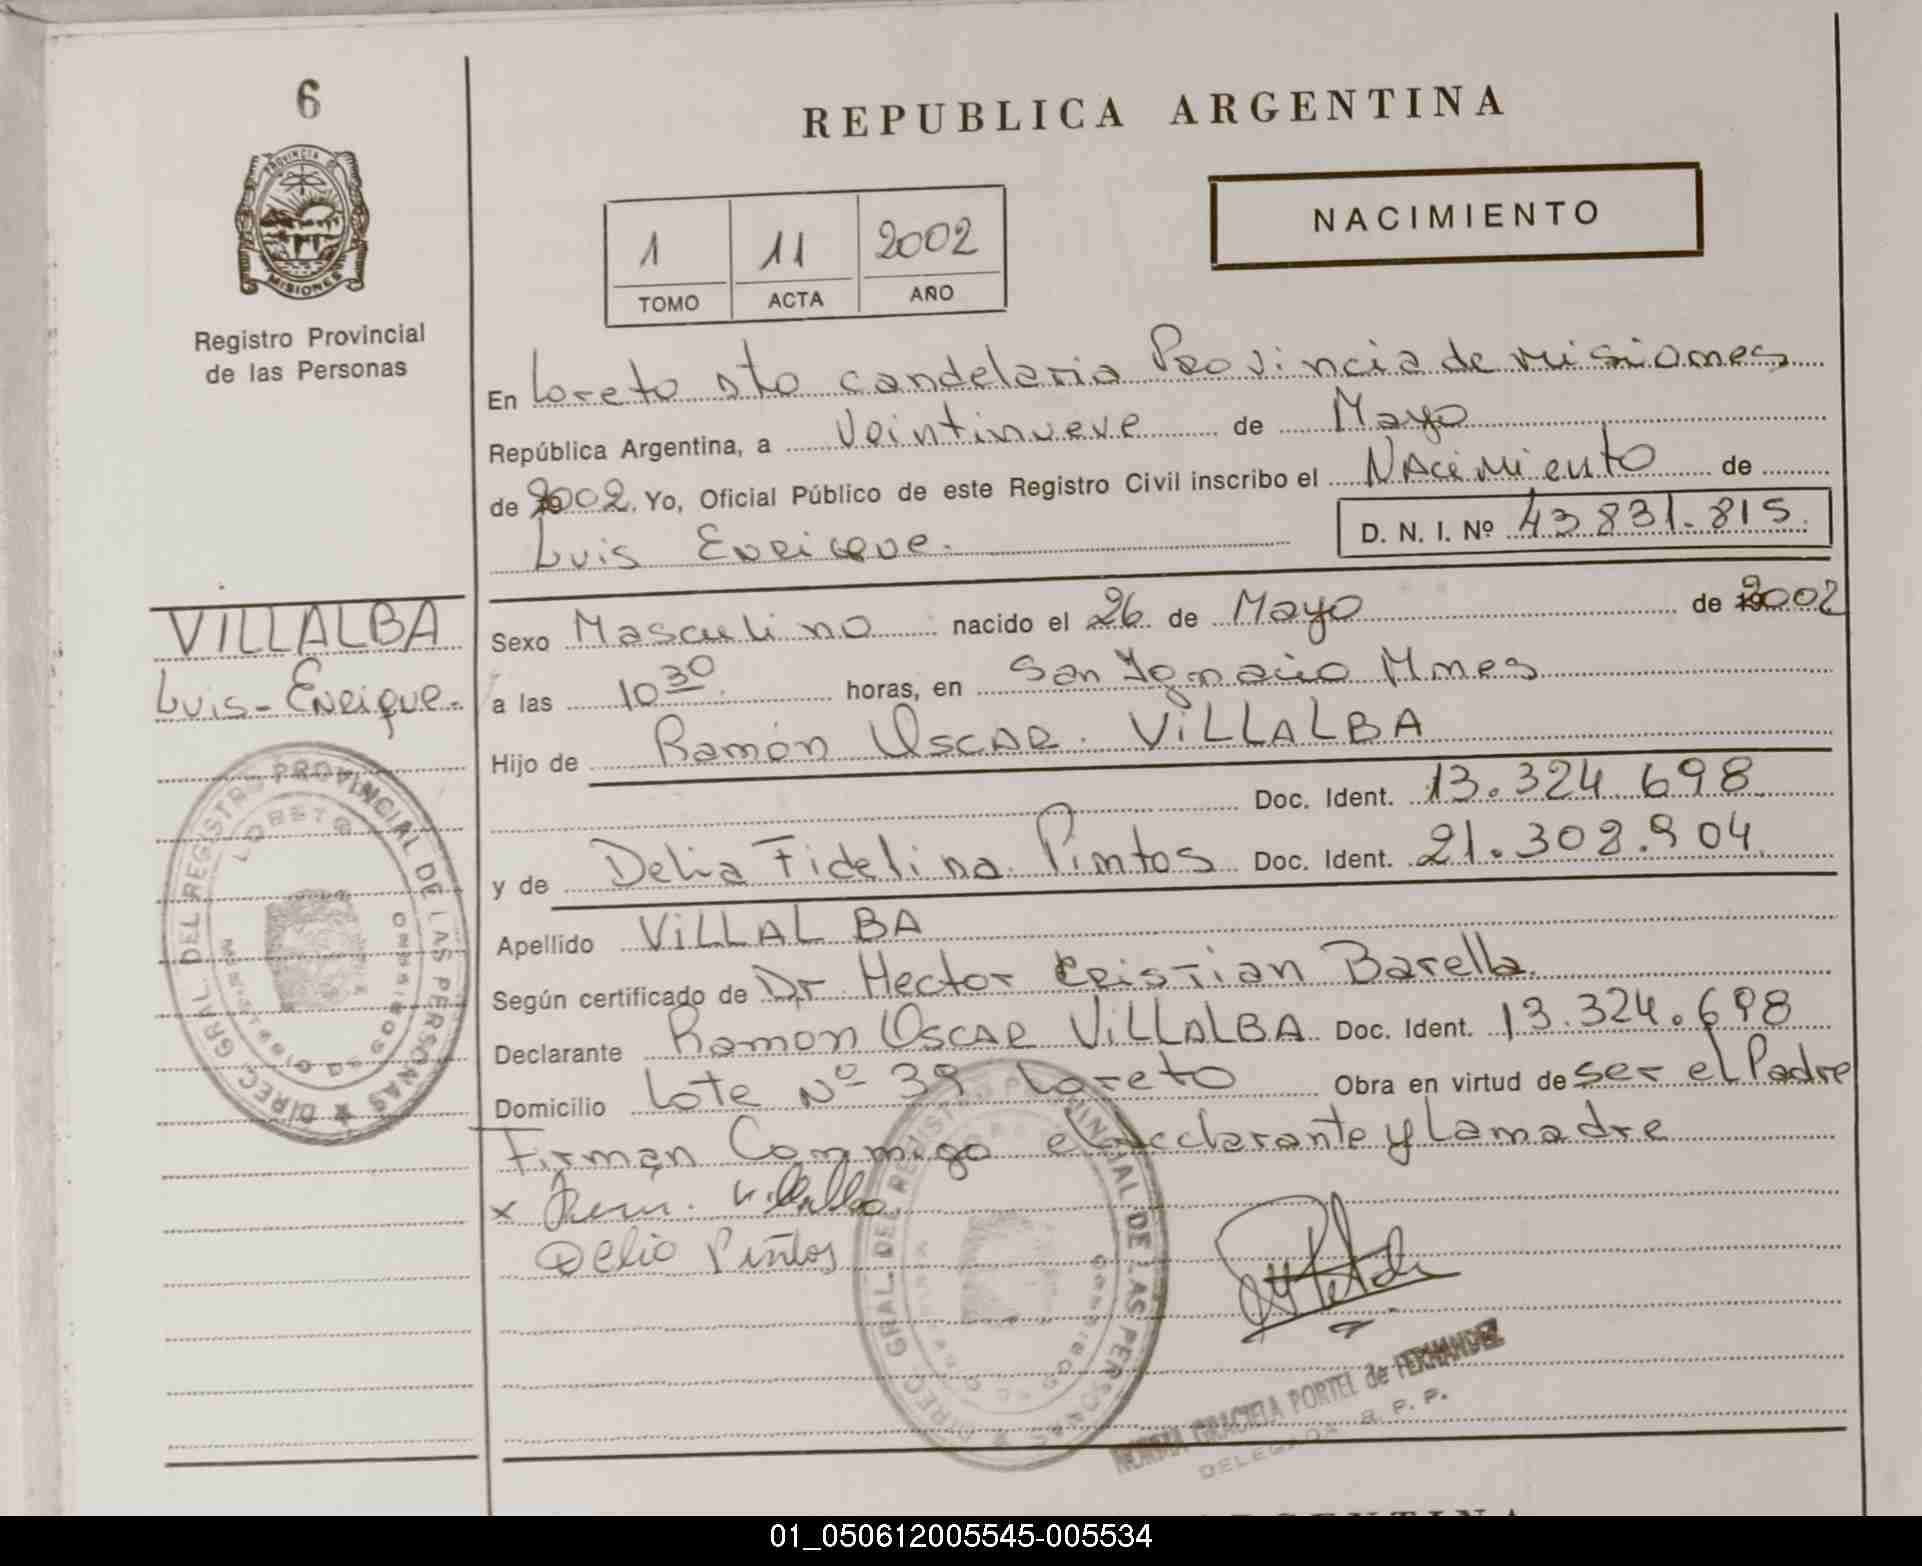 6
REPUBLICA ARGENTINA
PROVINCIA DE
MISIONES
NACIMIENTO
1 11 2002
TOMO ACTA AÑO
Registro Provincial
de las Personas
En Loreto Dto candelaria Provincia de Misiones
República Argentina, a Veintinueve de Mayo
de 2002. Yo, Oficial Público de este Registro Civil inscribo el NAcimiento de
Luis Enrique. D. N. I. Nº 43.831.815.
VILLALBA
Luis-Enrique.
Sexo Masculino nacido el 26 de Mayo de 2002
a las 10 30 horas, en San Ignacio Mnes
Hijo de Ramón OscAR. ViLLALBA
Doc. Ident. 13.324.698
y de Delia Fidelina Pintos Doc. Ident. 21.302.904
Apellido ViLLALBA
Según certificado de Dr Hector Cristian Barella.
Declarante Ramon OscAR ViLLALBA Doc. Ident. 13.324.698
Domicilio Lote Nº 39 Loreto Obra en virtud de ser el Padre
Firman Conmigo el declarante y La madre
x Villalba
Delia Pintos
DIREC. GRAL. DEL REGISTRO PROVINCIAL DE LAS PERSONAS
LORETO
DIREC. GRAL. DEL REGISTRO PROVINCIAL DE LAS PERSONAS
NORMA GRACIELA PORTEL de FERNANDEZ
DELEGADA R. P. P.
ARGENTINA
01_050612005545-005534